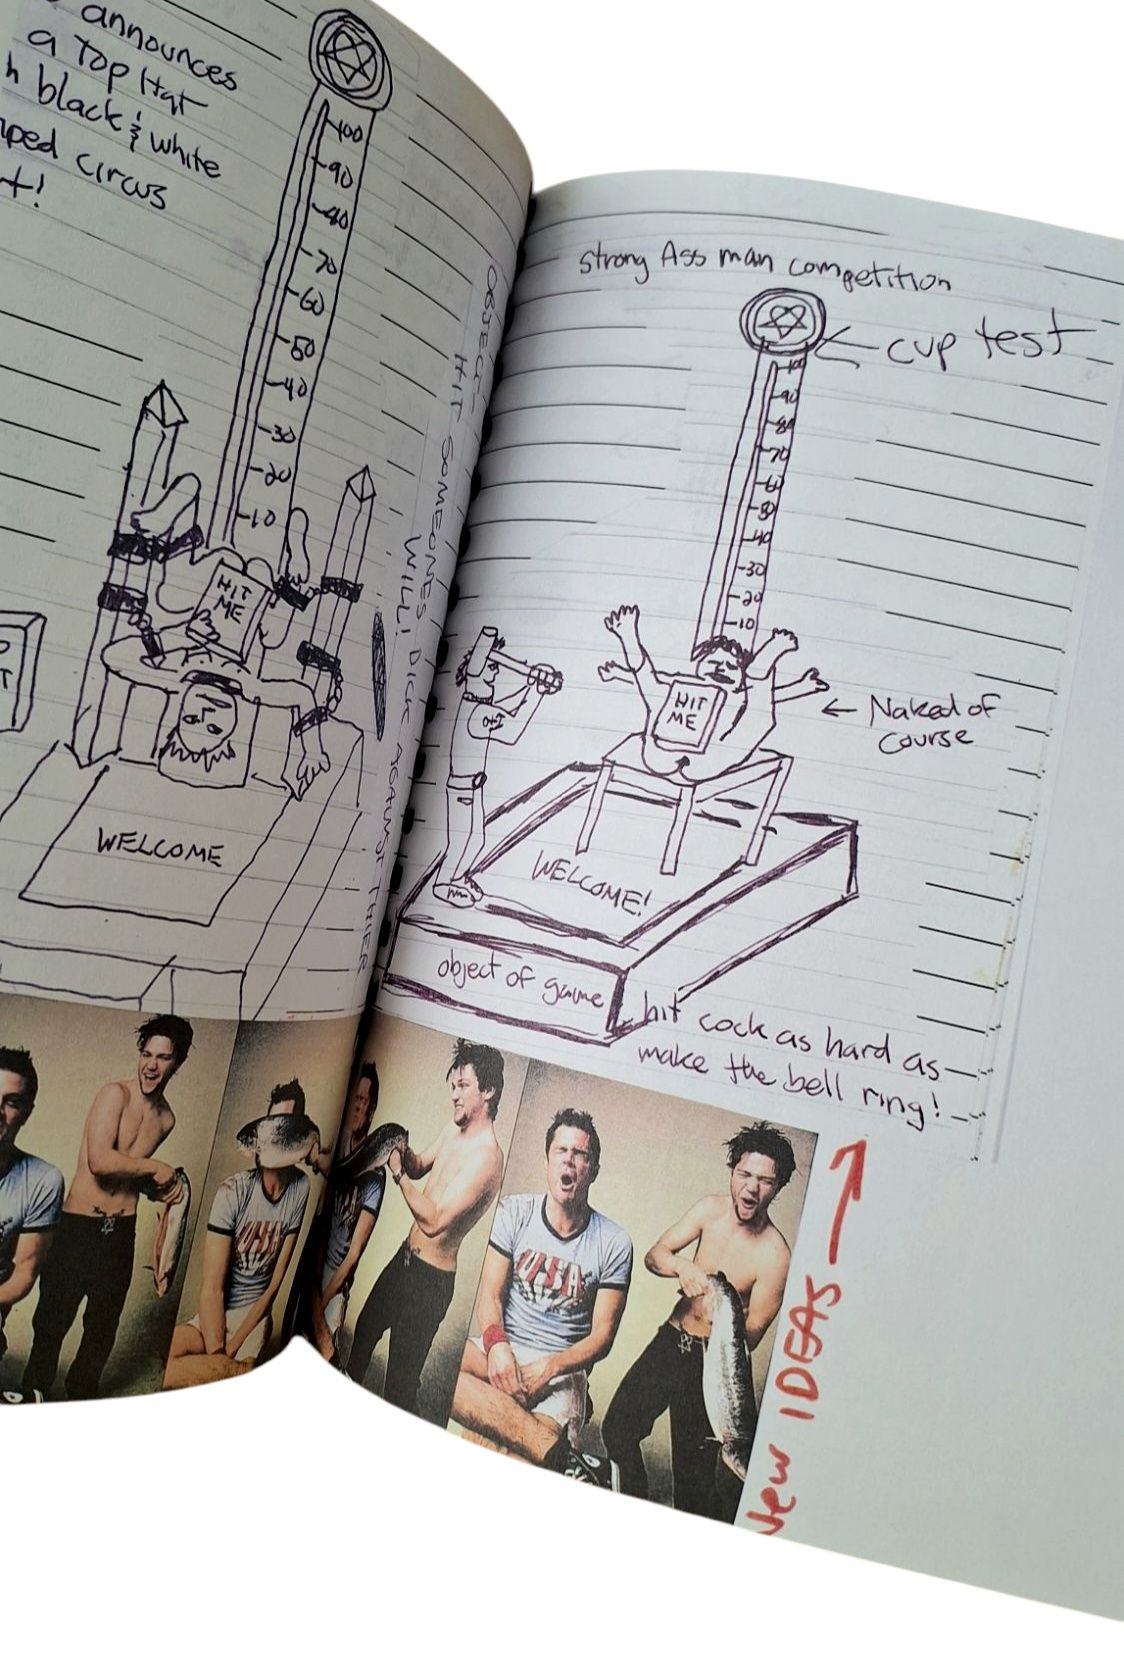 announces
a Top Hat
black & white
circus
100
90
40
70
60
50
40
30
20
10
HIT
ME
WELCOME
OBJECT:
HIT SOMEONES
WILL! DICK AGAINST THIER
strong Ass man competition
cup test
100
90
80
70
60
50
40
30
20
10
HIT
ME
Naked of
course
WELCOME!
object of game
hit cock as hard as
make the bell ring!
USA
USA
New IDEAS